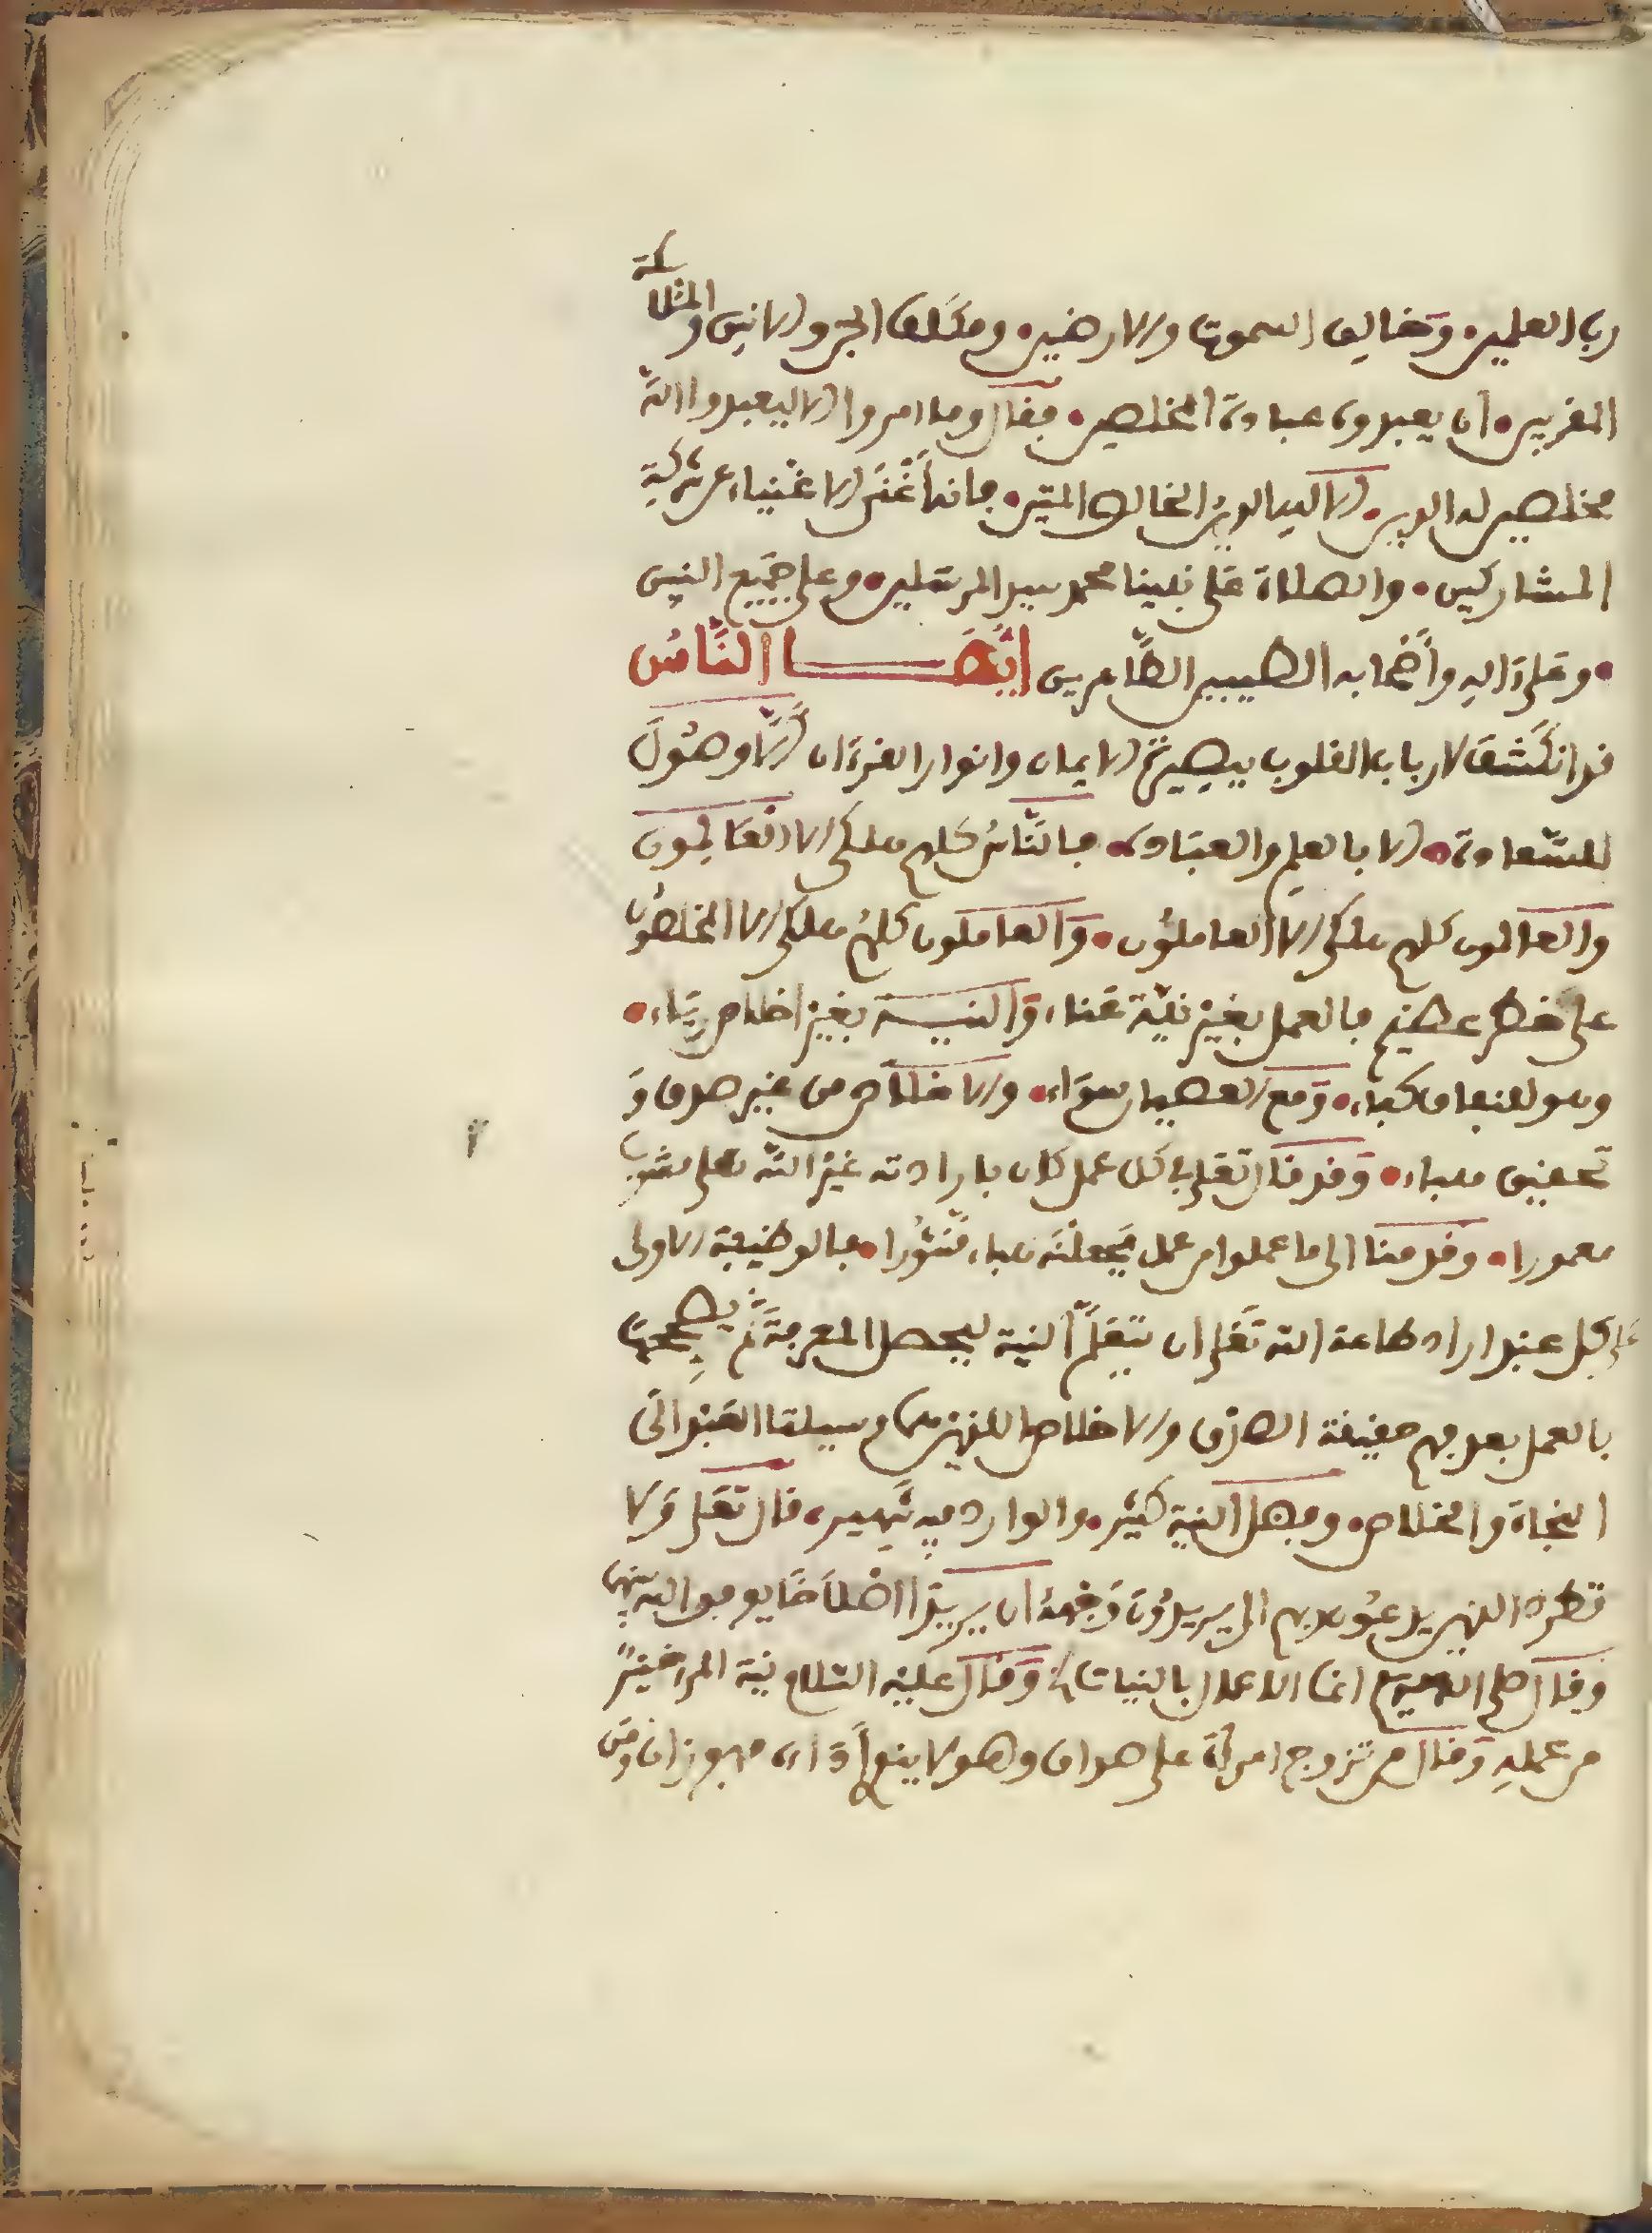 رب العلمين • وخالق السموت والارضين • ومكلف الجن والانس والملائكة
المقربين • ان يعبدوه عبادة المخلصين • فقال وما امروا الا ليعبدوا الله
مخلصين له الدين • الا لله الدين الخالص المتين • فانه أغنى الاغنياء عن شركة
المشاركين • والصلاة على نبينا محمد سيد المرسلين • وعلى جميع النبين
• وعلى ءاله وأصحابه الطيبين الطاهرين ايها الناس
قد انكشف لارباب القلوب ببصيرة الايمان وانوار القرءان ألا وصول
للسعادة • الا بالعلم والعبادة • فالناس كلهم هلكى الا العالمون
والعالمون كلهم هلكى الا العاملون • والعاملون كلهم هلكى الا المخلصون
على خطر عظيم فالعمل بغير نية عناء، والنيـة بغير اخلاص رياء •
وهو للنفاق كفاء • ومع العصيان سواء • والاخلاص من غير صدق و
تحقيق هباء • وقد قال تعلى في كل عمل كان بارادته غير الله تعلى مشوب
مغمورا • وقدمنا الى ما عملوا من عمل فجعلنه هباء منثورا • فالوظيفة الاولى
على كل عبد اراد طاعة الله تعلى ان يتعلم النية ليحصل المعرفة ثم يصححها
بالعمل بعد فهم حقيقة الصدق والاخلاص اللذين هما وسيلتا العبد الى
النجاة والخلاص • وفضل النية كثير • والوارد فيه شهير، قال تعلى ولا
تطرد الذين يدعون ربهم الى يريدون وجهه ان يريدا اصلاحا يوفق الله بينهما
وقال صلى الله عليه وسلم انما الاعمال بالنيات وقال عليه السلام نية المرء خير
من عمله وقال من تزوج امرأة على صداق وهو لا ينوي أداءه فهو زان ومن